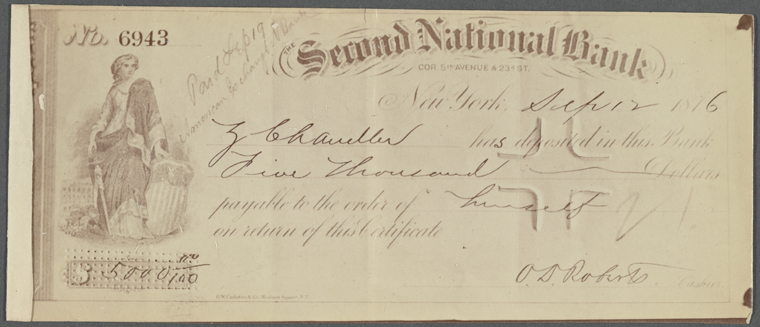 No. 6943
Paid Sep 19
American Exchange N Bank
THE Second National Bank
COR. 5TH AVENUE & 23D ST.
New York, Sep 12 1876
Z Chandler has deposited in this Bank
Five Thousand Dollars
payable to the order of himself
on return of this Certificate
$ 5000 no/100
O. D. Roberts Cashier